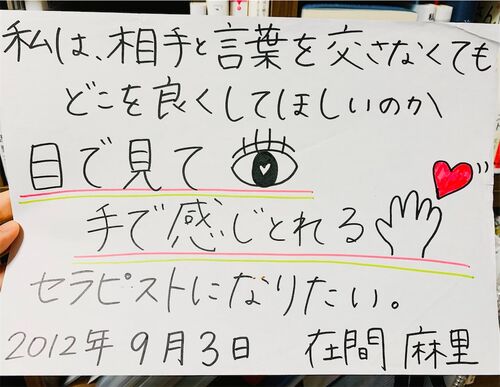 私は、相手と言葉を交さなくても
どこを良くしてほしいのか
目で見て
手で感じとれる
セラピストになりたい。
2012年9月3日 在間 麻里